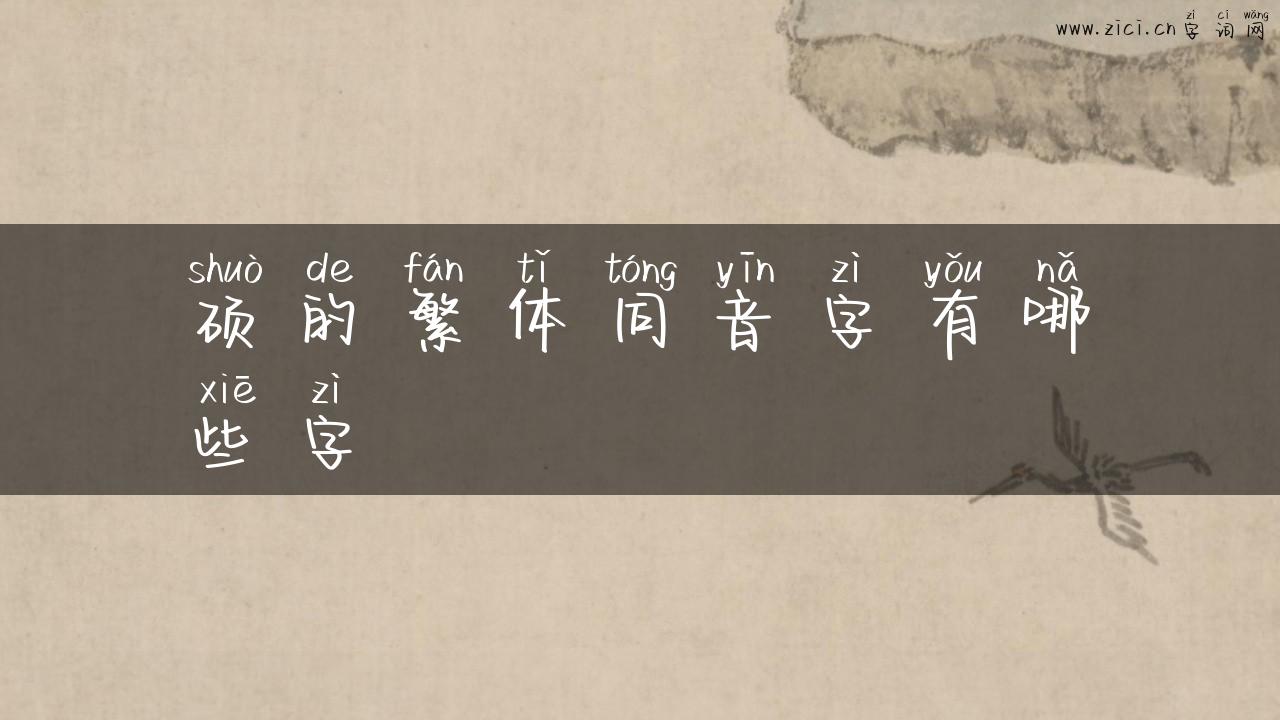 zì cí wǎng
www.zici.cn 字词网
shuò de fán tǐ tóng yīn zì yǒu nǎ
硕的繁体同音字有哪
xiē zì
些字